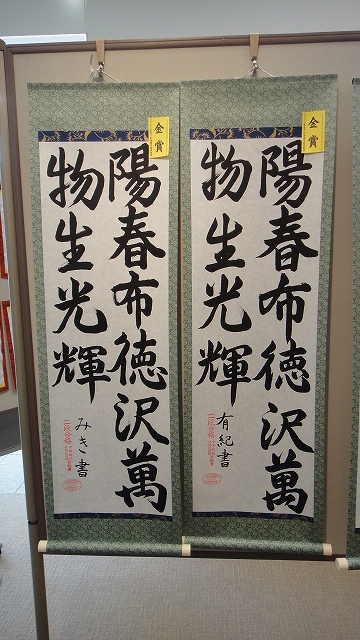 金賞
陽春布徳沢萬
物生光輝
有紀書
金賞
陽春布徳沢萬
物生光輝
みき書